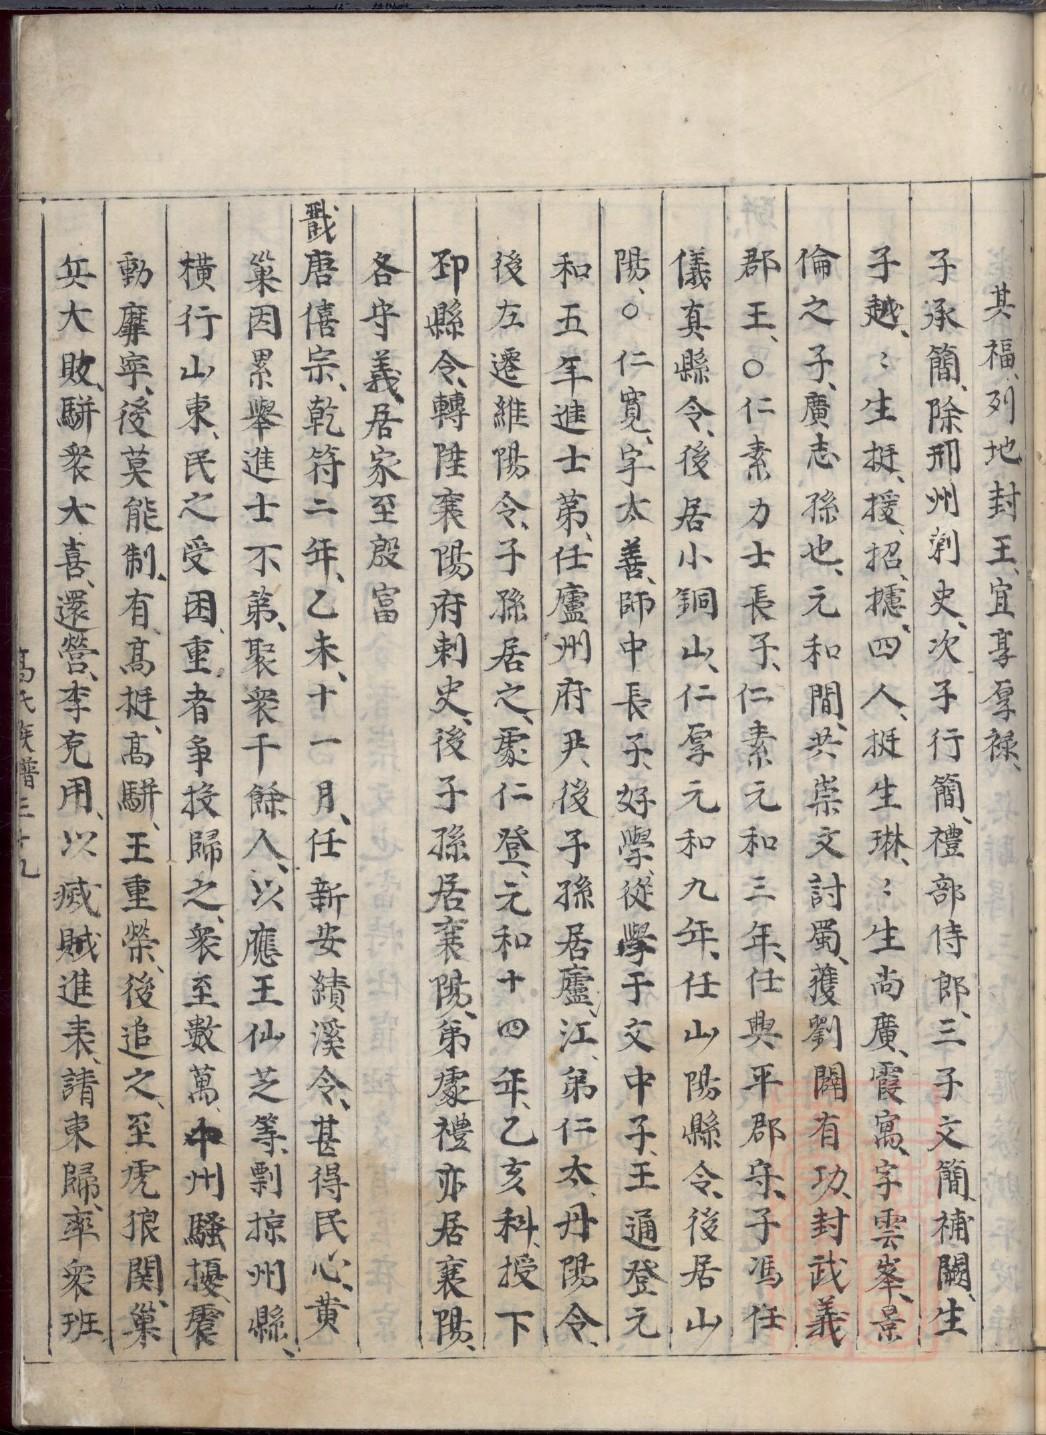 其福、列地封王、宜享厚祿、
子承簡、除邢州刺史、次子行簡、禮部侍郎、三子文簡、補闕、生
子越、〻生挺、援、招、攄、四人、挺生琳、〻生尚廣、霞寓、字雲峯、景
倫之子、廣志孫也、元和間、共崇文討蜀、獲劉闢有功、封武義
郡王、○仁素力士長子、仁素元和三年、任興平郡守、子馮任
儀真縣令、後居小銅山、仁厚元和九年、任山陽縣令、後居山
陽、○仁寬、字太善、師中長子、好學、從學于文中子、王通登元
和五年進士第、任廬州府尹、後子孫居廬、江、弟仁太、丹陽令、
後左遷維陽令、子孫居之、處仁登、元和十四年、乙亥科、授下
邳縣令、轉陞襄陽府刺史、後子孫居襄陽、弟處禮亦居襄陽、
各守義、居家至殷富
戬唐僖宗、乾符二年、乙未、十一月、任新安績溪令、甚得民心、黄
巢因累舉進士不第、聚衆千餘人、以應王仙芝等、剽掠州縣、
橫行山東、民之受困、重者爭投歸之、衆至數萬、中州騷擾、震
動靡寧、後莫能制、有高挺、高駢、王重榮、後追之、至虎狼関、巢
兵大敗、駢衆大喜、還營、李克用、以㓕賊進表、請東歸、率衆班
高氏族譜三十九